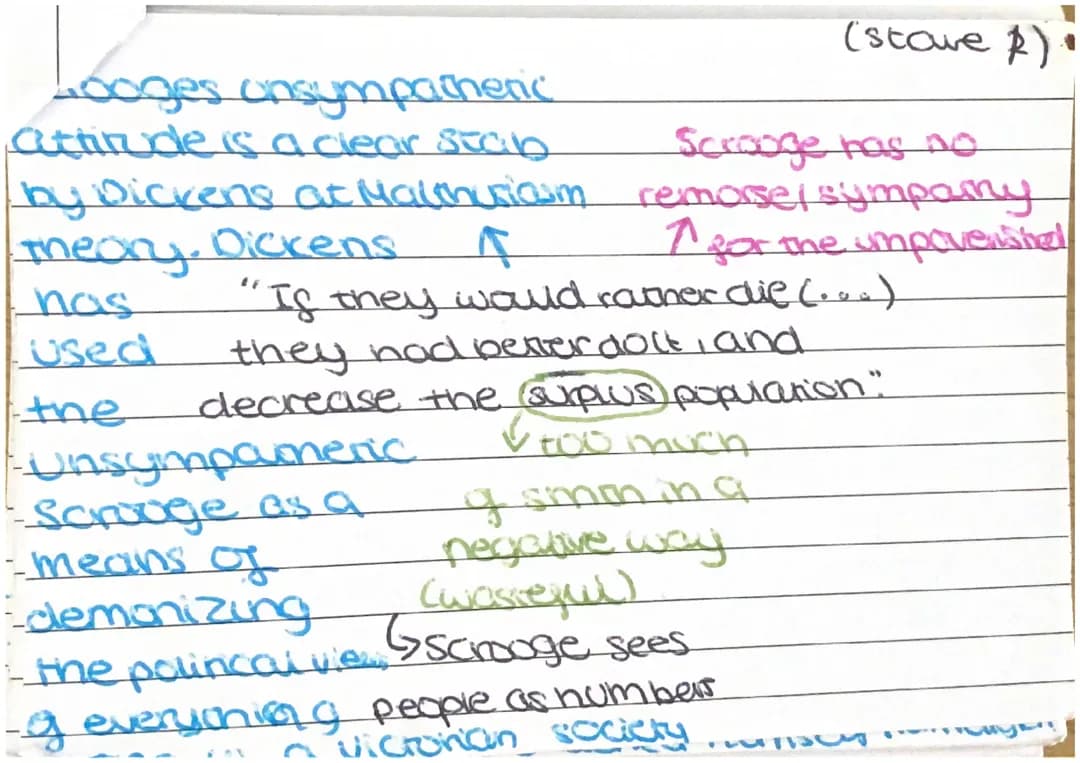 (Stave 1)
unsympathetic
attitude is a clear stab
by Dickens at Malthusiasm
theory. Dickens
has
used
the
unsympathetic
Scrooge as a
means of
demonizing
the political views
of everything of
a Victorian society
Scrooge has no
remorse/sympathy
for the impoverished
"If they would rather die (...)
they had better do it, and
decrease the surplus population".
too much
of smth in a
negative way
(wasteful)
Scrooge sees
people as numbers